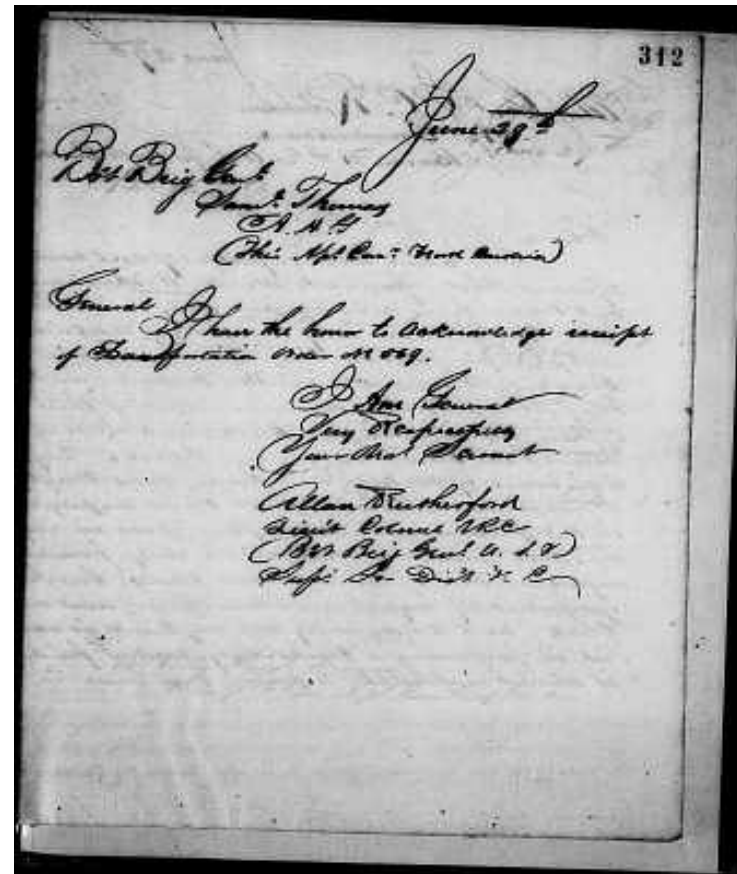 312
June 29th
Bvt Brig Genl
Saml Thomas
A. A. G
General
I have the honor to acknowledge receipt
of Transportation order No 569.
I Am General
Very Respectfully
Your Obt Servant
Allan Rutherford
Lieut Colonel VRC
(Bvt Brig Genl U. S. V)
Supt So Dist N C